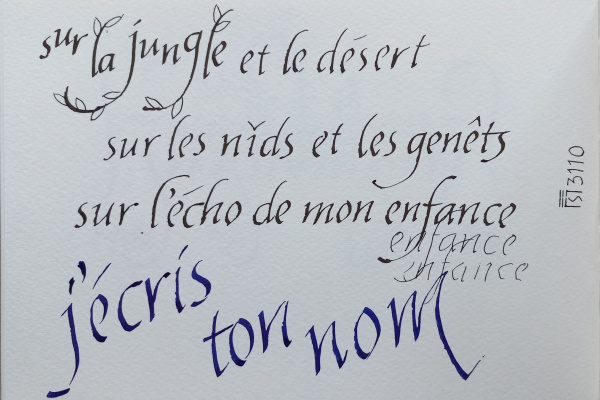 sur la jungle et le désert
sur les nids et les genêts
sur l'écho de mon enfance
enfance
enfance
j'écris
ton nom
3110